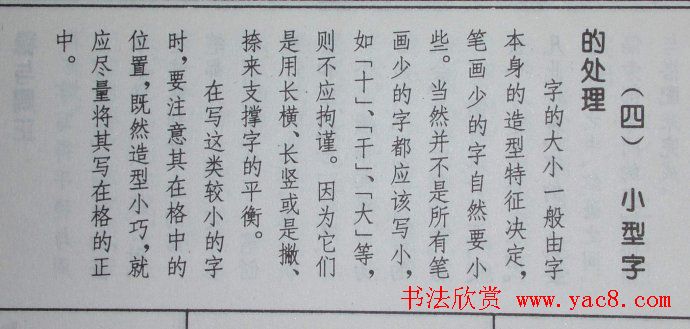 （四）小型字
的处理
字的大小一般由字
本身的造型特征决定，
笔画少的字自然要小
些。当然并不是所有笔
画少的字都应该写小，
如“十”、“干”、“大”等，
则不应拘谨。因为它们
是用长横、长竖或是撇、
捺来支撑字的平衡。
在写这类较小的字
时，要注意其在格中的
位置，既然造型小巧，就
应尽量将其写在格的正
中。
书法欣赏 www.yac8.com